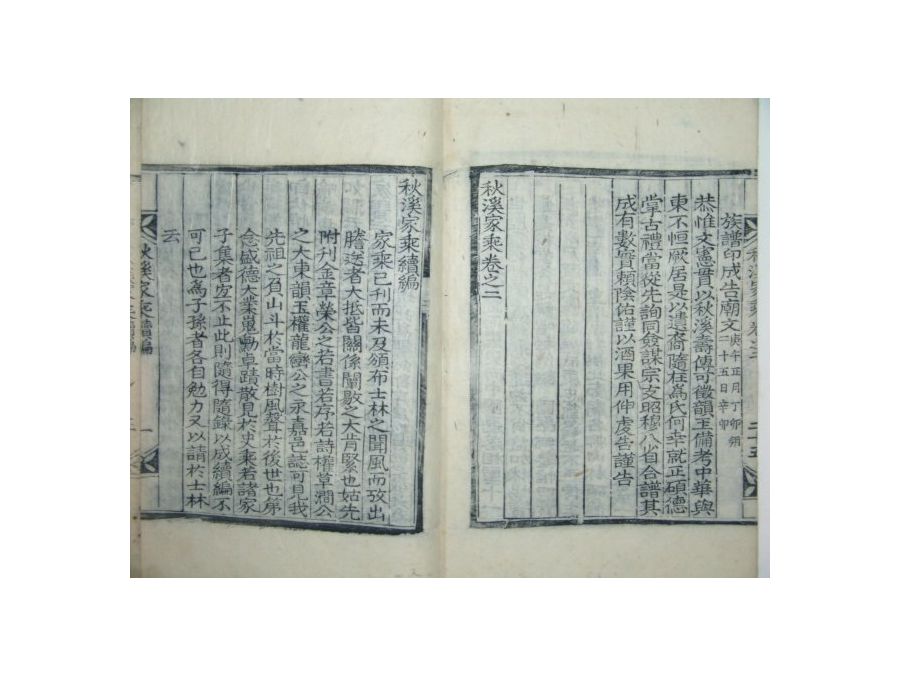 族譜印成告廟文 庚午正月丁卯朔二十五日辛卯
恭惟文憲貫以秋溪壽傳可徵韻玉備考中華與
東不恒厥居是以遺裔隨柱為氏何幸就正碩德
掌古禮當從先詢同僉謀宗支昭穆八省合譜其
成有數實賴陰佑謹以酒果用伸虔告謹告
秋溪家乘卷之二
秋溪家乘續編
家乘已刋而未及頒布士林之聞風而攷出
謄送者大抵皆關係闡敭之大肯緊也姑先
附刋金章榮公之若書若序若詩權草澗公
之大東韻玉權龍巒公之永嘉邑誌可見我
先祖之有山斗於當時樹風聲於後世也第
念盛德大業嵬勳卓蹟散見於史乘若諸家
子集者宜不止此則隨得隨錄以成續編不
可已也為子孫者各自勉力又以請於士林
云
秋溪家乘續編
一